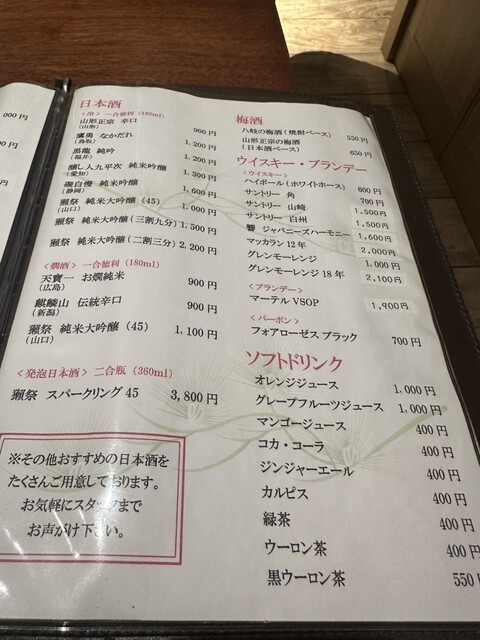 000円
円
円
日本酒
〈冷〉一合徳利(180ml)
山形正宗 辛口 900円
(山形)
鷹勇 なかだれ 1,200円
(鳥取)
黒龍 純吟 1,200円
(福井)
醸し人九平次 純米吟醸 1,300円
(愛知)
磯自慢 純米吟醸 1,600円
(静岡)
獺祭 純米大吟醸(45) 1,000円
(山口)
獺祭 純米大吟醸(三割九分) 1,500円
獺祭 純米大吟醸(二割三分) 2,200円
〈燗酒〉一合徳利(180ml)
天寶一 お燗純米 900円
(広島)
麒麟山 伝統辛口 900円
(新潟)
獺祭 純米大吟醸(45) 1,100円
(山口)
〈発泡日本酒〉二合瓶(360ml)
獺祭 スパークリング45 3,800円
※その他おすすめの日本酒を
たくさんご用意しております。
お気軽にスタッフまで
お声がけ下さい。
梅酒
八岐の梅酒(焼酎ベース) 550円
山形正宗の梅酒
(日本酒ベース) 650円
ウイスキー・ブランデー
〈ウイスキー〉
ハイボール(ホワイトホース) 600円
サントリー 角 700円
サントリー 山崎 1,500円
サントリー 白州 1,500円
響 ジャパニーズハーモニー 1,600円
マッカラン12年 2,000円
グレンモーレンジ 1,000円
グレンモーレンジ 18年 2,100円
〈ブランデー〉
マーテル VSOP 1,900円
〈バーボン〉
フォアローゼス ブラック 700円
ソフトドリンク
オレンジジュース 1,000円
グレープフルーツジュース 1,000円
マンゴージュース 400円
コカ・コーラ 400円
ジンジャーエール 400円
カルピス 400円
緑茶 400円
ウーロン茶 400円
黒ウーロン茶 550円